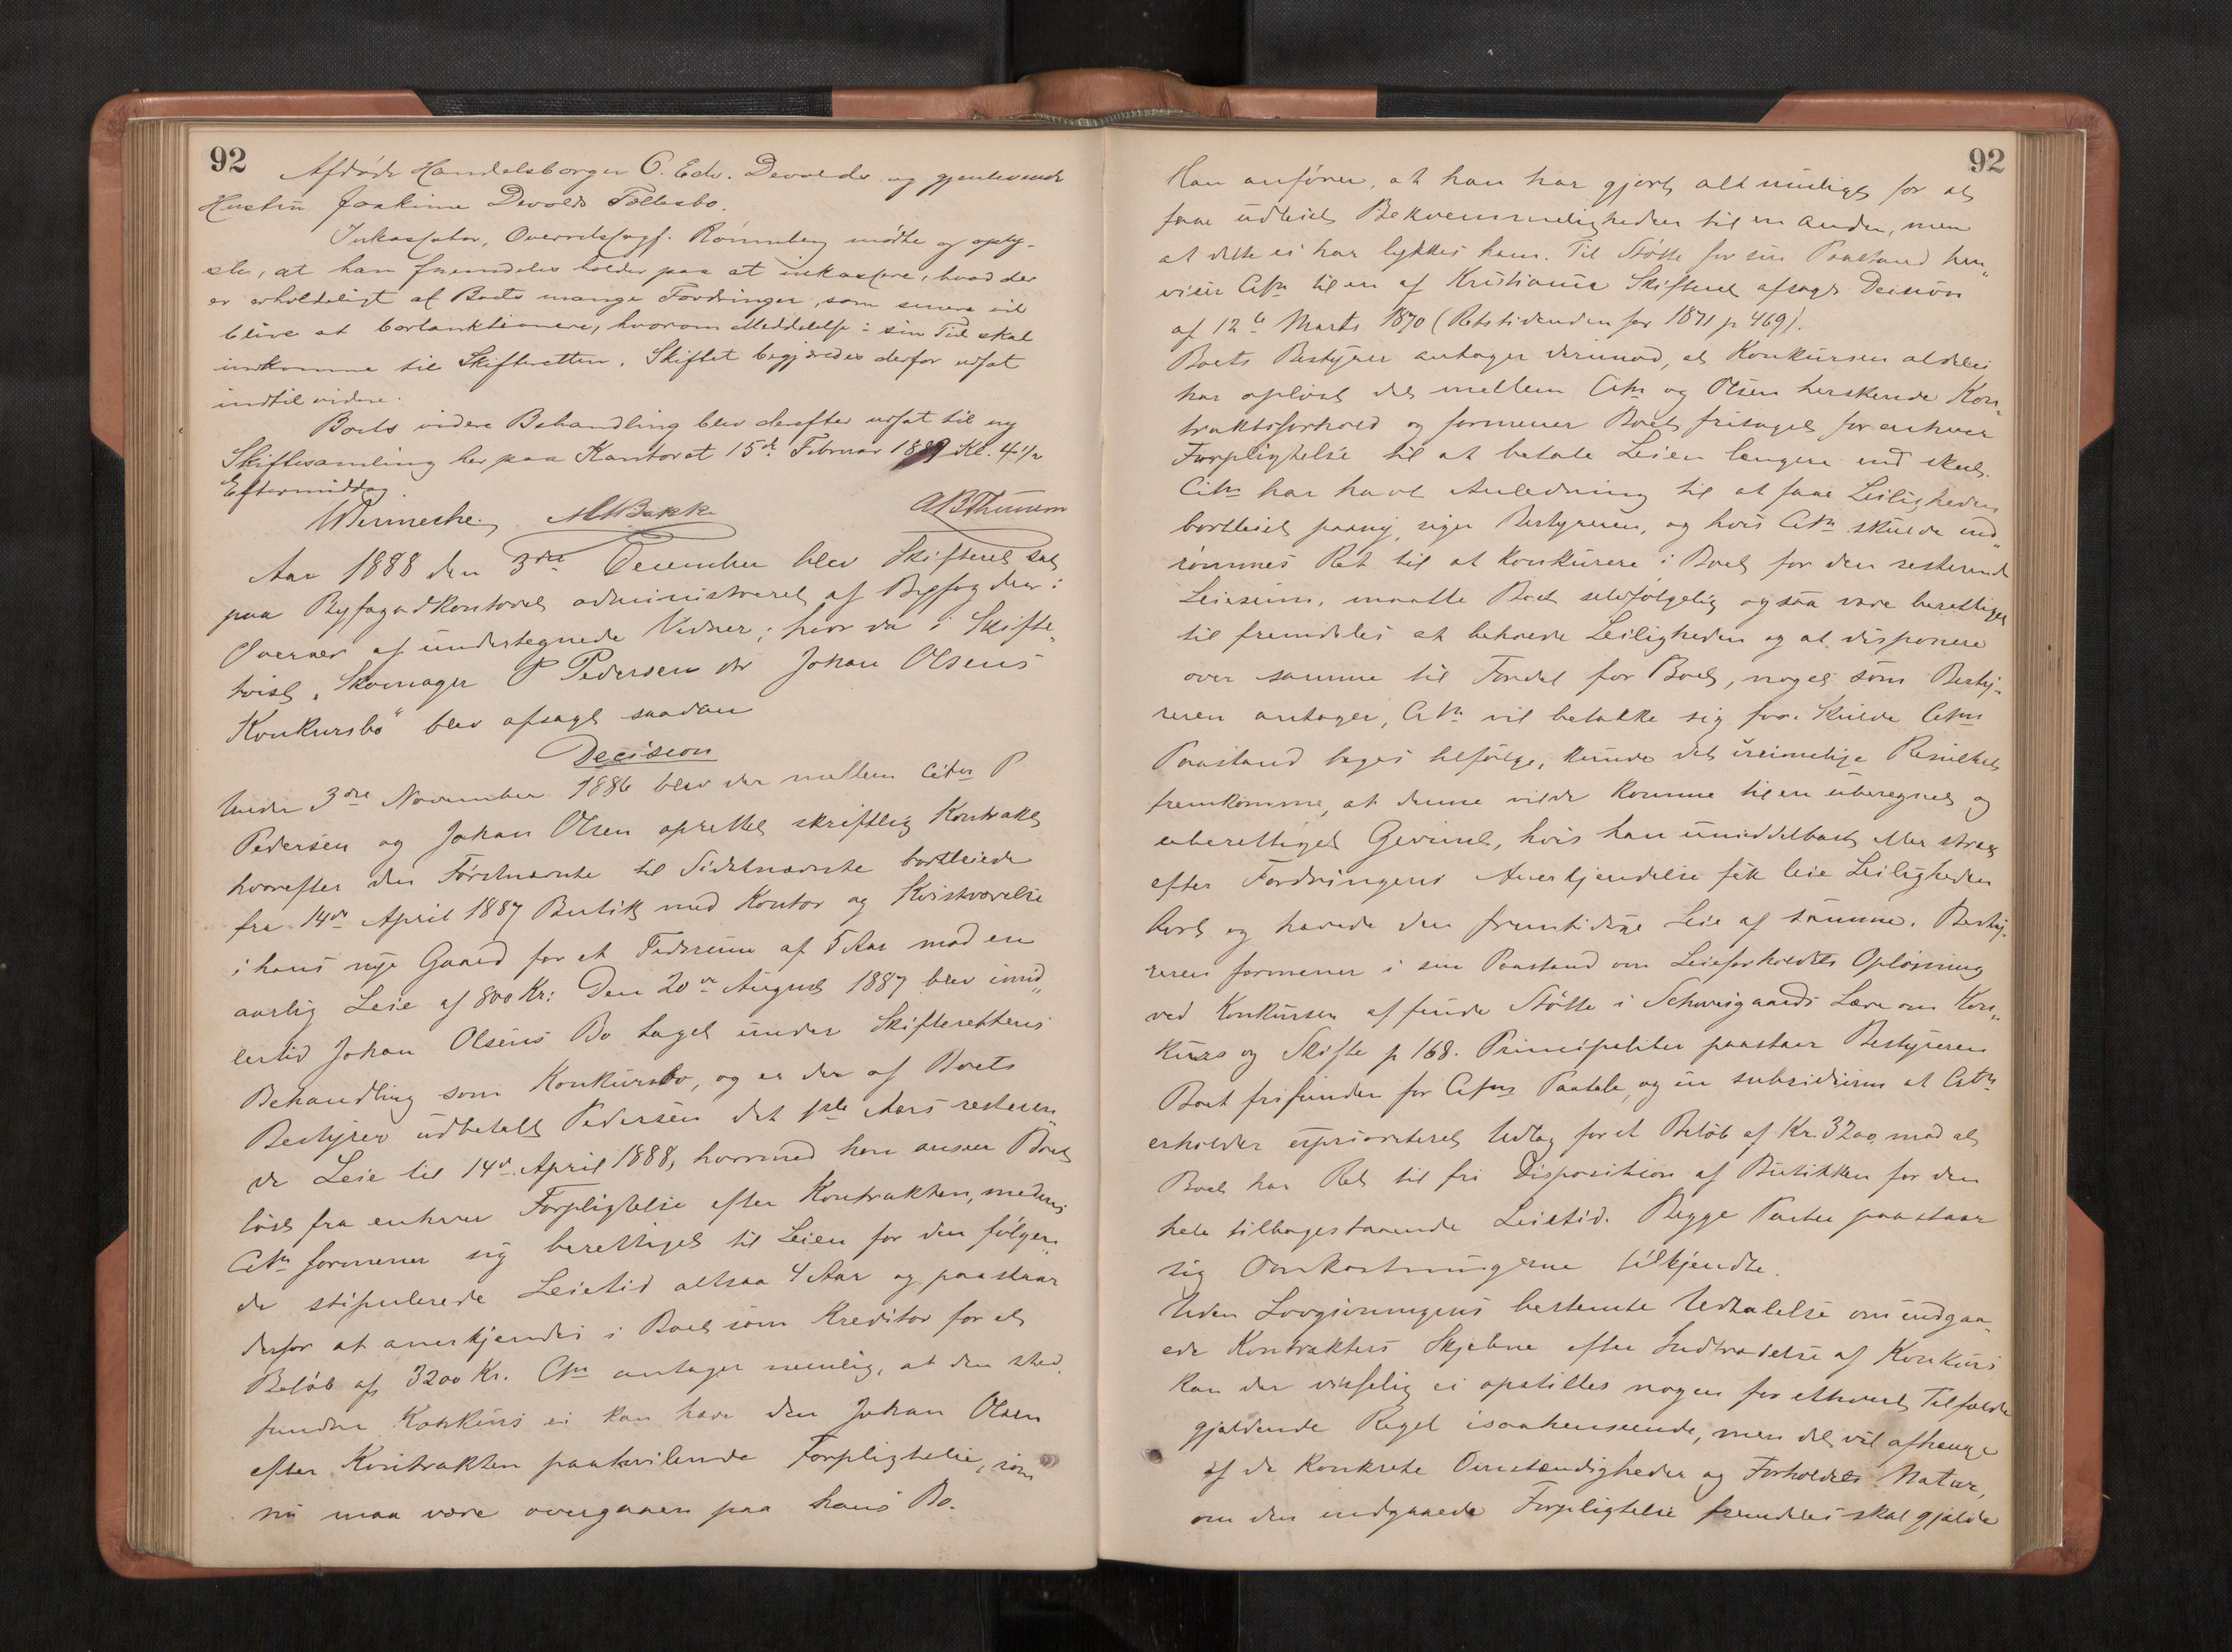 92
Afdøde Handelsborger O. Edv. Devolds og gjenlevende
Hustru Joakime Devolds Fællesbo.
Inkassator, Overretssagf. Rønneberg mødte og oply-
ste, at han fremdeles holder paa at inkassere, hvad der
er erholdeligt af Boets mange Fordringer, som senere vil
blive at bortauktionere, hvorom Meddelelse i sin Tid skal
indkomme til Skifteretten. Skiftet begjæredes derfor udsat
indtil videre.
Boets videre Behandling blev derefter udsat til ny
Skiftesamling her paa Kontoret 15de Februar 1889 Kl. 4½
Eftermiddag.
M Bakke
Aar 1888 den 3die December blev Skifteret sat
paa Byfogedkontoret administreret af Byfogden i
Overvær af undertegnede Vidner; hvor da i Skifte„
tvist „Skomager P Pedersen ctr Johan Olsens
Konkursbo" blev afsagt saadan
Decision
Under 3die November 1886 blev der mellem Citn P
Pedersen og Johan Olsen oprettet skriftlig Kontrakt
hvorefter den Førstnævnte til Sidstnævnte bortleiede
fra 14de April 1887 Butik med Kontor og Kvistværelse
i hans nye Gaard for et Tidsrum af 5 Aar mod en
aarlig Leie af 800 Kr: Den 20de August 1887 blev imid„
lertid Johan Olsens Bo taget under Skifterettens
Behandling som Konkursbo, og er der af Boets
Bestyrer udbetalt Pedersen det 1ste Aars resteren„
de Leie til 14de April 1888, hvormed han anser Boet
løst fra enhver Forpligtelse efter Kontrakten, medens
Citn formener sig berettiget til Leien for den følgen„
de stipulerede Leietid altsaa 4 Aar og paastaar
derfor at anerkjendes i Boet som Kreditor for et
Beløb af 3200 Kr. Citn antager nemlig, at den sted„
fundne Konkurs ei kan hæve den Johan Olsen
efter Kontrakten paahvilende Forpligtelse, som
nu maa være overgaaen paa hans Bo.
92
Han anfører, at han har gjort alt muligt for at
faae udleiet Bekvemmeligheden til en anden, men
at dette ei har lykkes ham. Til Støtte for sin Paastand hen„
viser Citn til en af Kristiania Skifteret afsagt Decision
af 12te Marts 1870 (Retstidenden for 1871 p 469).
Boets Bestyrer antager derimod, at Konkursen aldeles
har opløst det mellem Citn og Olsen herskende Kon„
traktsforhold og formener Boet fritaget for enhver
Forpligtelse til at betale Leien længere end skeet.
Citn har havt Anledning til at faae Leiligheden
bortleiet paany, siger Bestyreren, og hvis Citn skulde ind„
rømmes Ret til at konkurere i Boet for den resterende
Leiesum, maatte Boet selvfølgelig ogsaa være berettiget
til fremdeles at beholde Leiligheden og at disponere
over samme til Fordel for Boet, noget som Besty„
reren antager, Citn vil betakke sig for. Skulde Citns
Paastand tages tilfølge, kunde det urimelige Resultat
fremkomme, at denne vilde komme til en uberegnet og
uberettiget Gevinst, hvis han umiddelbart eller strax
efter Fordringens Anerkjendelse fik leie Leiligheden
bort og hævede den fremtidige Leie af samme. Besty„
reren formener i sin Paastand om Leieforholdets Opløsning
ved Konkursen at finde Støtte i Schweigaards Lære om Kon„
kurs og Skifte p 168. Principaliter paastaar Bestyreren
Boet frifunden for Citns Paatale, og in subsidium at Citn
erholder uprioriteret Udlæg for et Beløb af Kr. 3200 mod at
Boet har Ret til fri Disposition af Butikken for den
hele tilbagestaaende Leietid. Begge Parter paastaar
sig Omkostningerne tilkjendte.
Uden Lovgivningens bestemte Udtalelse om indgaa„
ede Kontrakters Skjebne efter Indtrædelse af Konkurs
kan der vistselig ei opstilles nogen for ethvert Tilfælde
gjældende Regel isaahenseende, men det vil afhænge
af de konkrete Omstændigheder og Forholdets Natur,
om den indgaaede Forpligtelse fremdeles skal gjælde